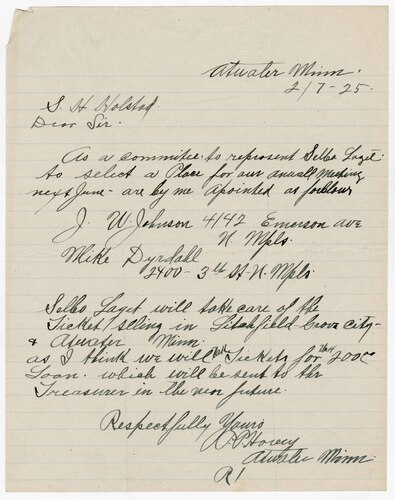 Atwater Minn.
2/7-25.
S. H Holstad.
Dear Sir.
As a commitee to represent Selbo Laget
to select a Place for our anuall Meeting
next June - are by me apointed as follows
J. W. Johnson 4142 Emerson ave
N. Mpls.
Mike Dyrdahl
2400 - 3rd St. N. Mpls.
Selbo Laget will take care of the
Ticket selling in Litchfield Grove city -
& Atwater Minn.
as I think we will Tickets for 200
Loan. which will be sent to the
Treasurer in the near future.
Respectfully Yours
Atwater Minn.
R 1